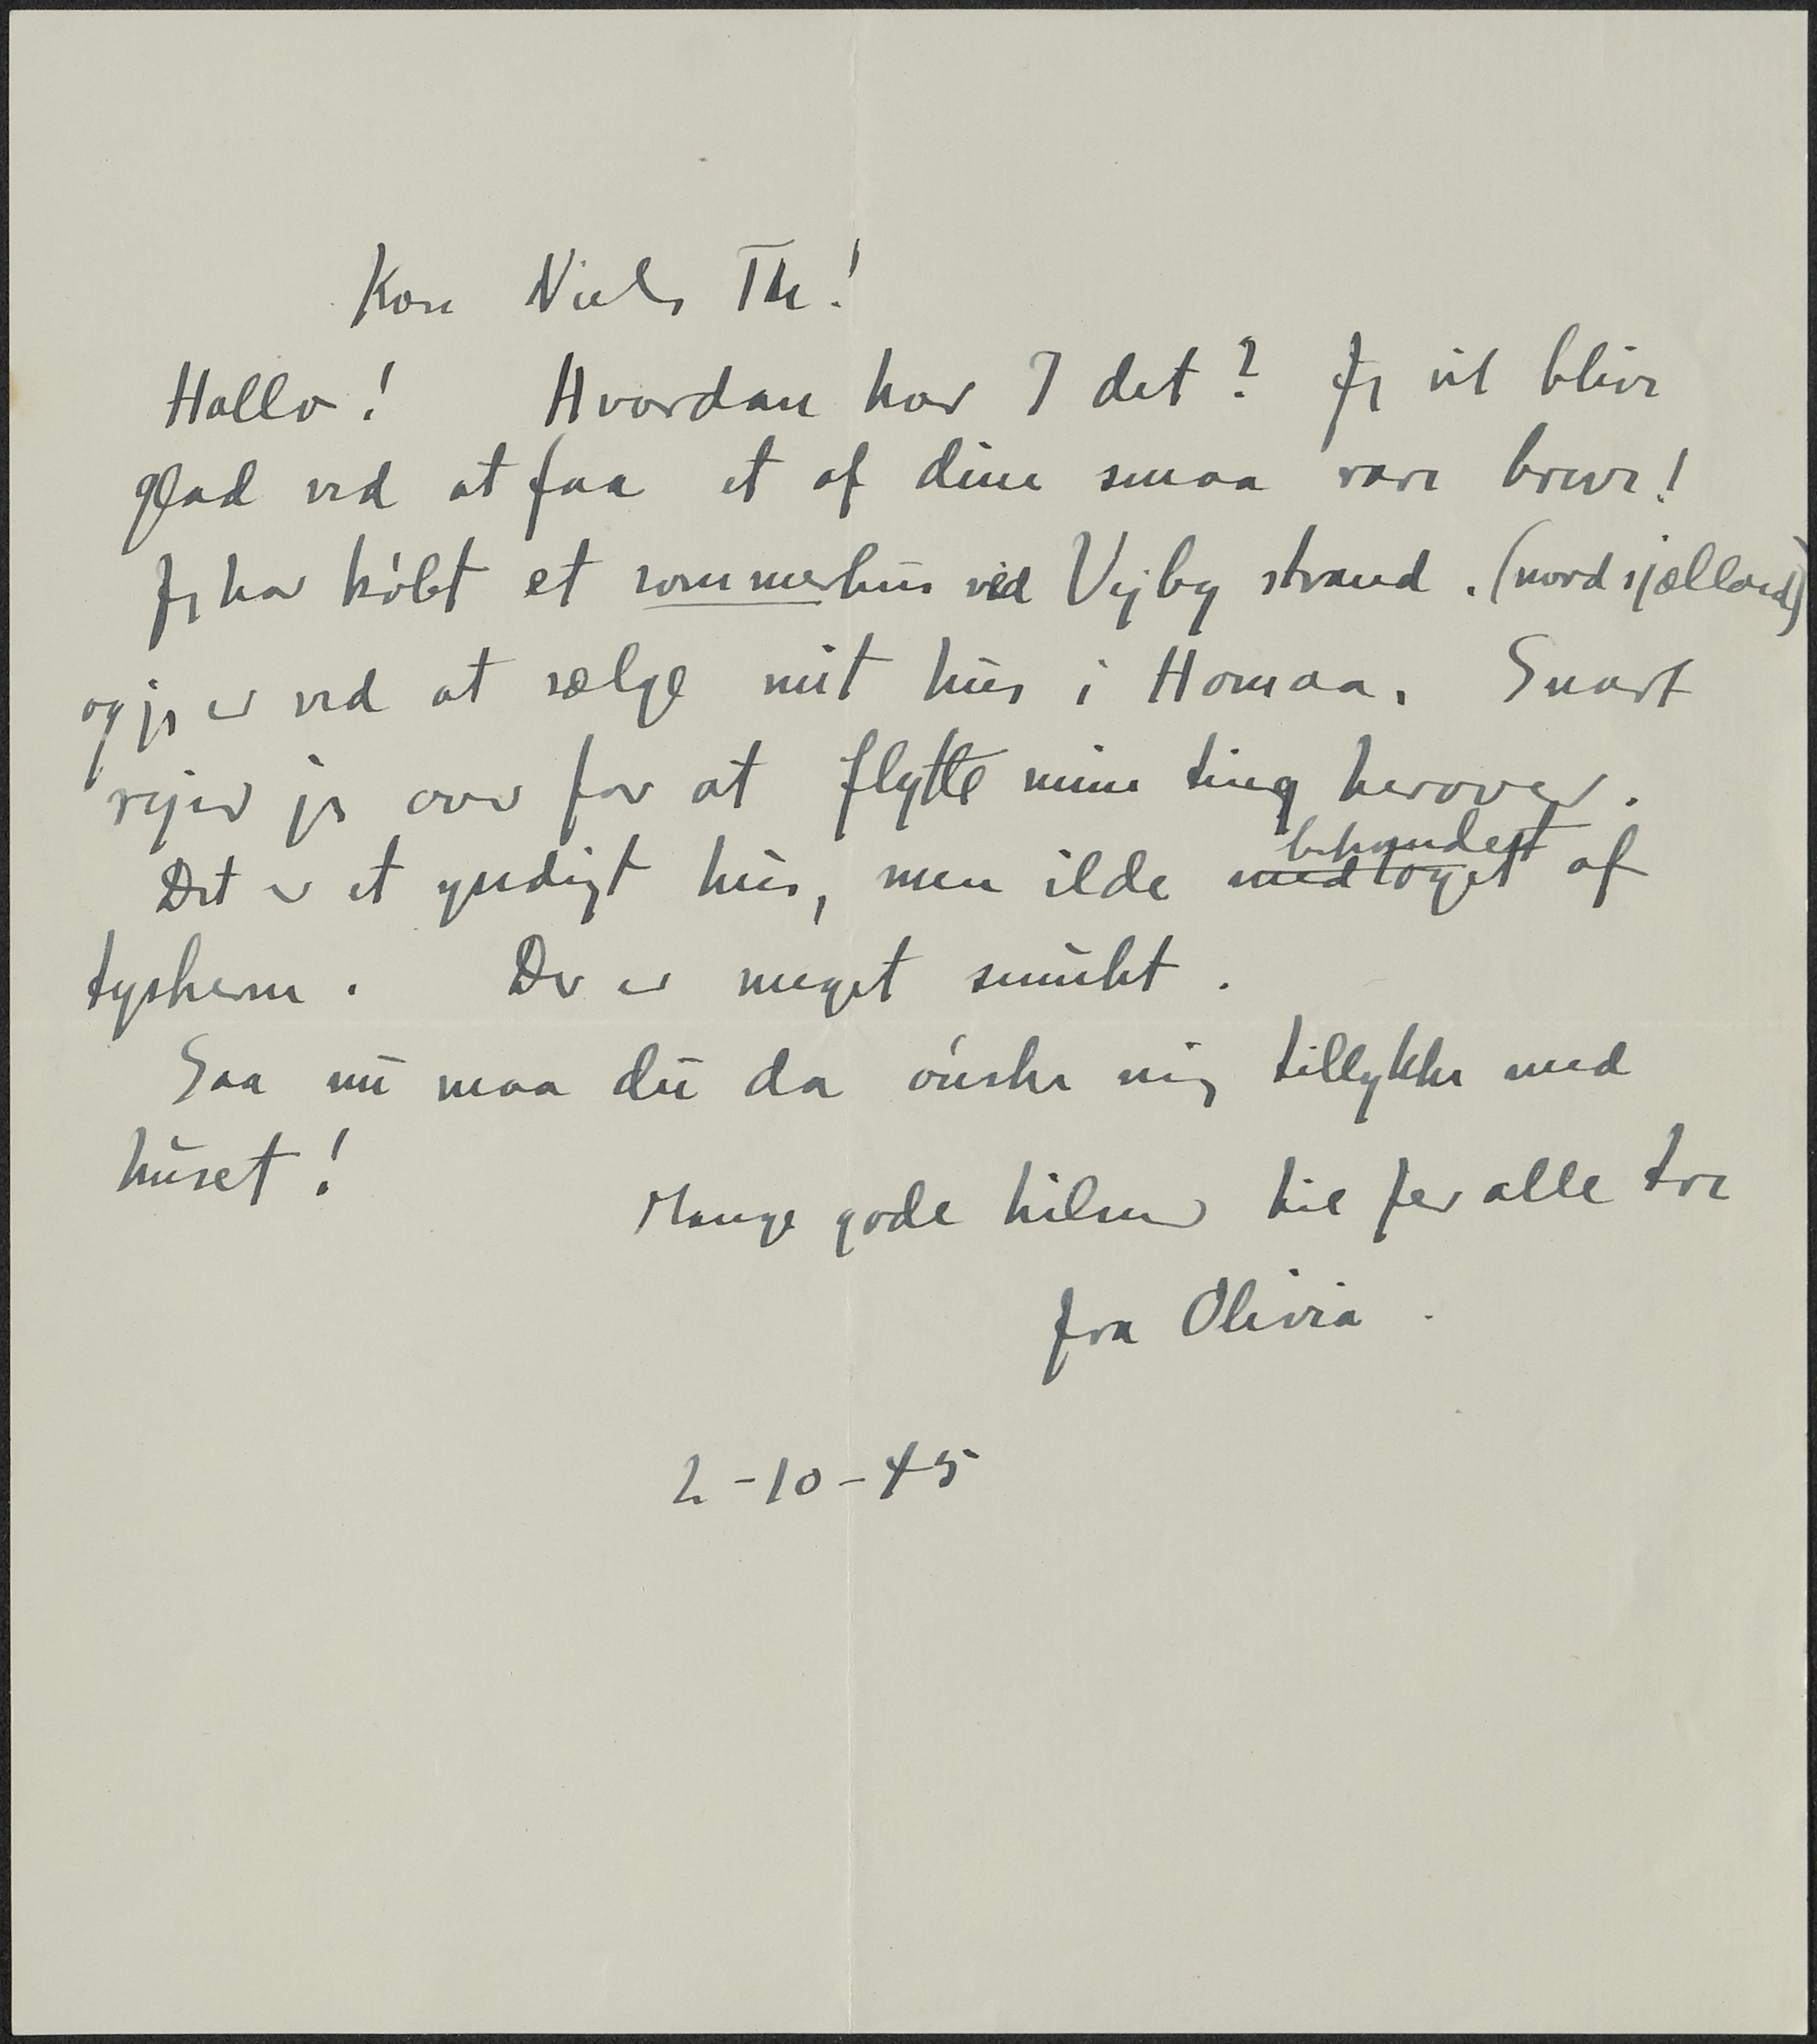 Kære Niels Th!
Hallo! Hvordan har I det? Jeg vil blive
glad ved at faa et af dine smaa rare breve!
Jeg har købt et sommerhus ved Vejby strand. (nordsjælland)
og jeg er ved at sælge mit hus i Homaa. Snart
rejser jeg over for at flytte mine ting herover.
behandlet
Det er et yndigt hus, men ilde medtaget af
tyskerne. Der er meget smukt.
Saa nu maa du da ønske mig tillykke med
huset!
Mange gode hilsner til Jer alle tre
fra Olivia.
2-10-45